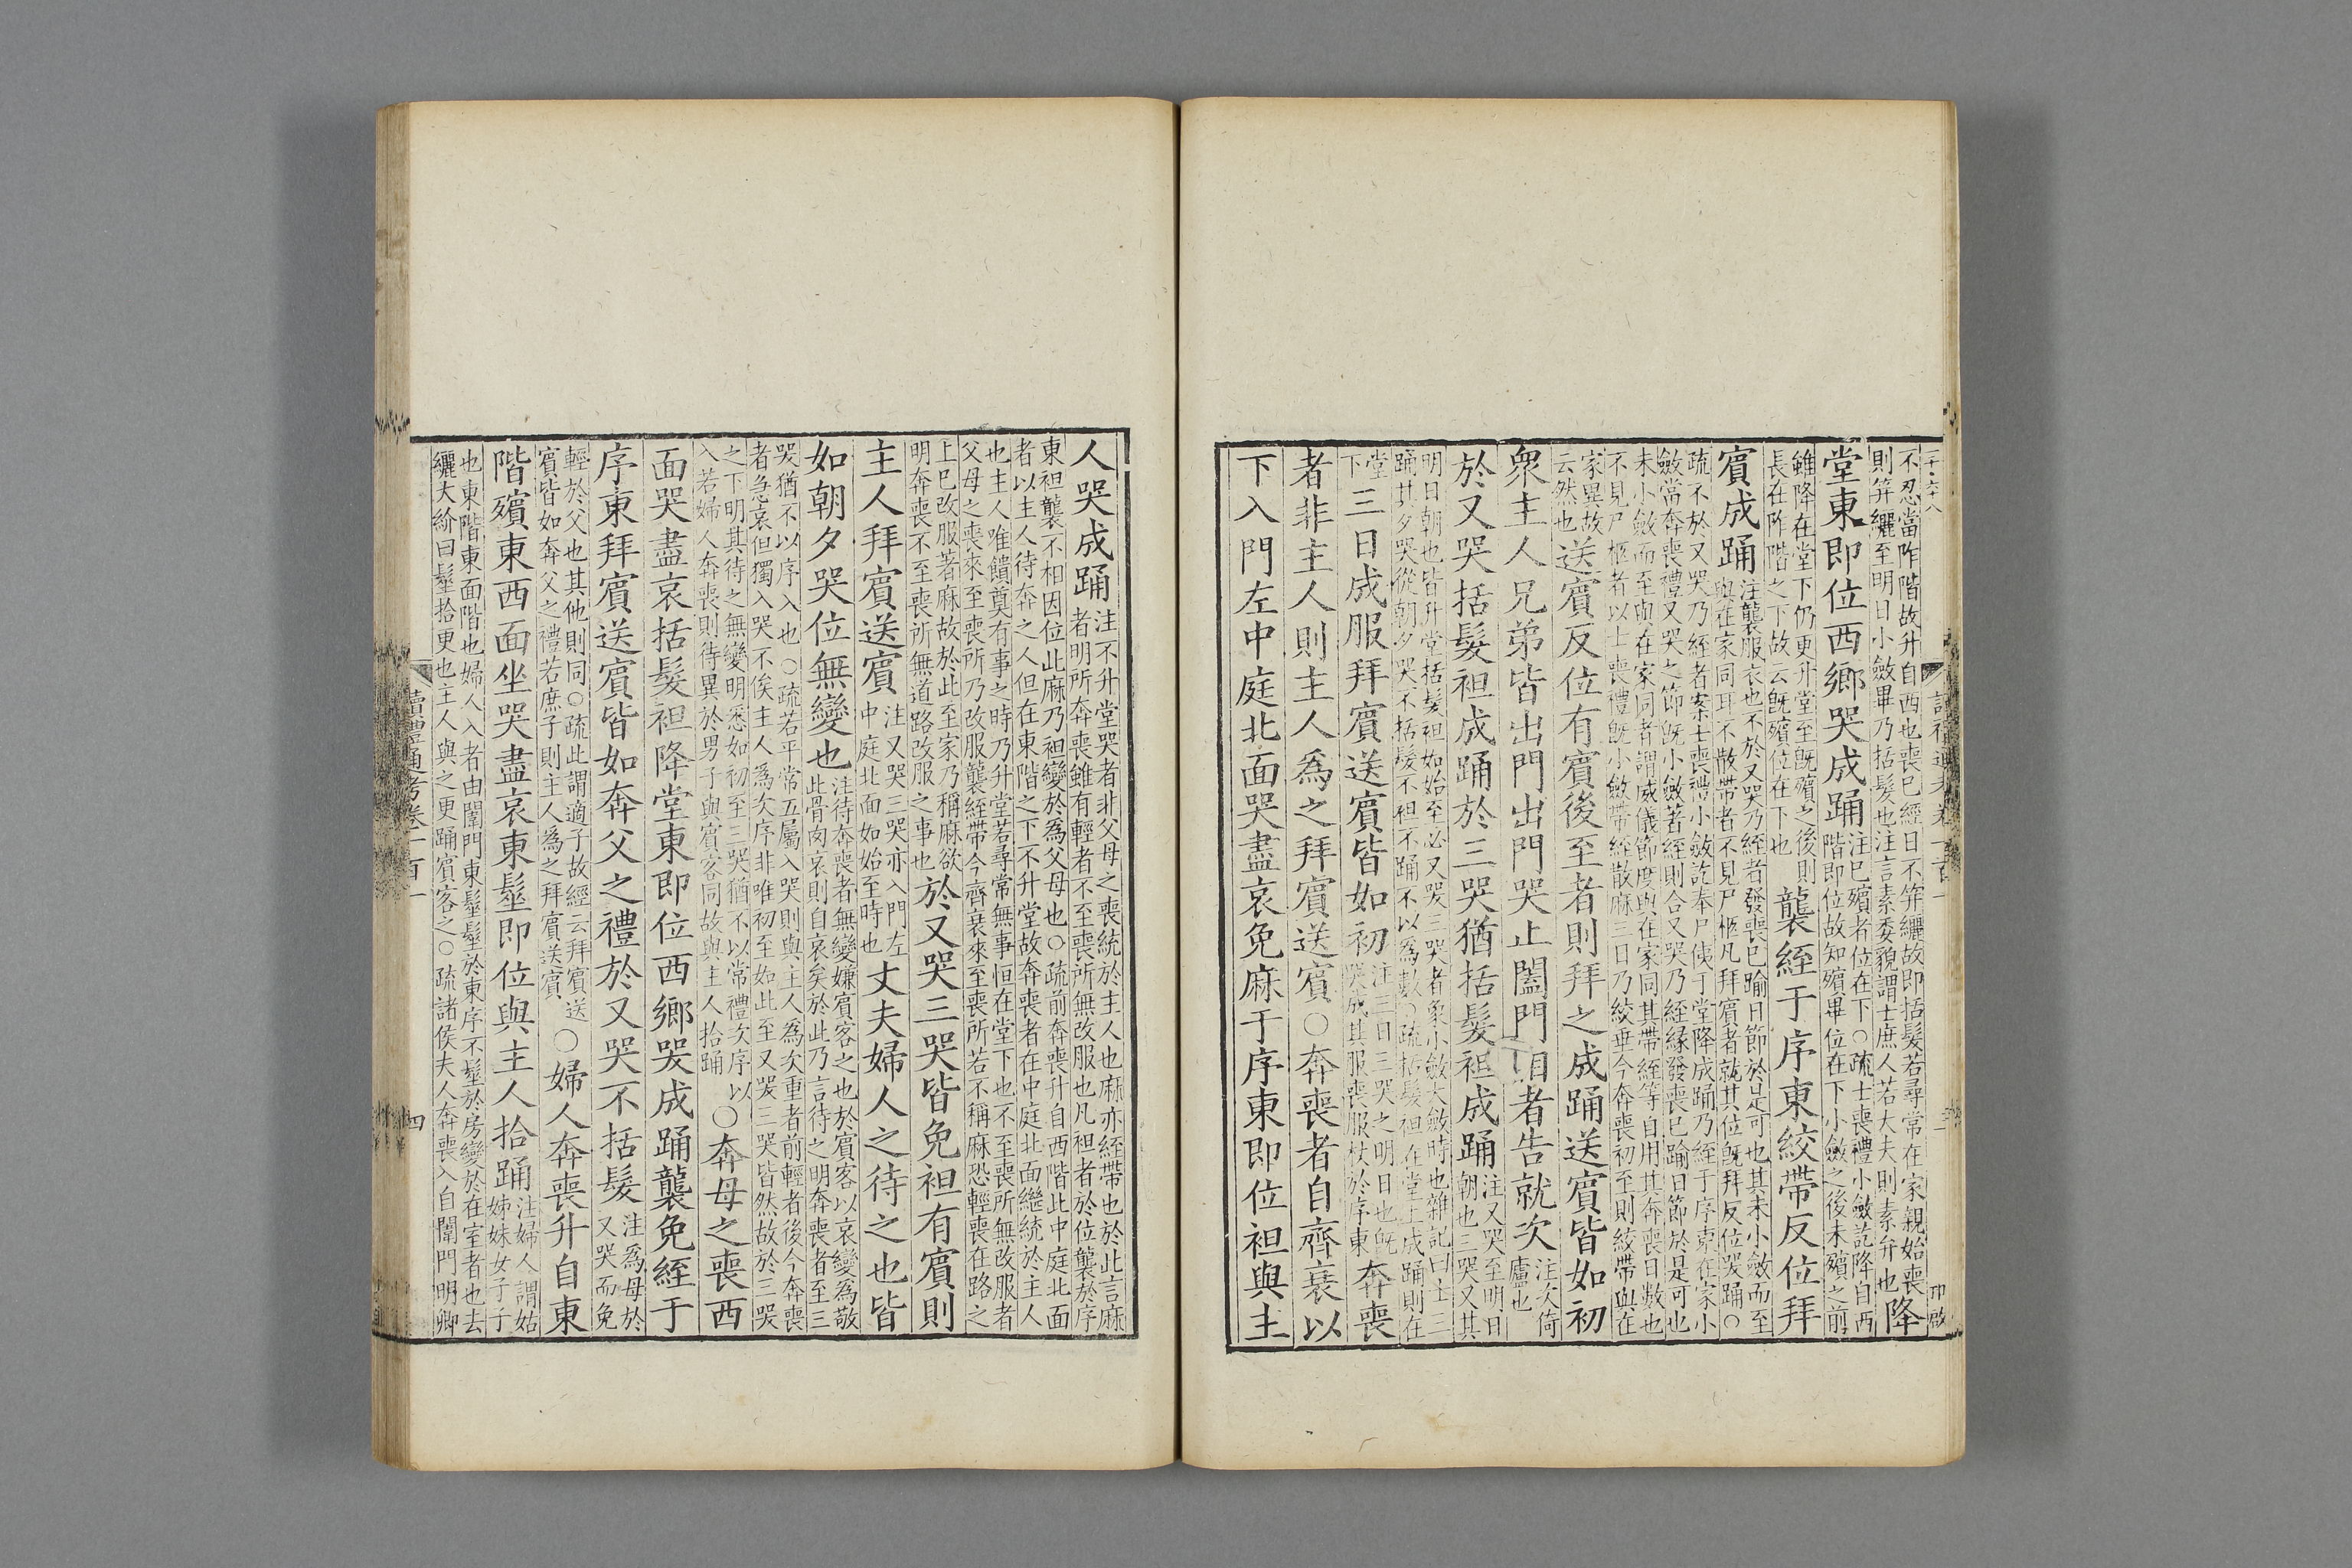 不忍當阼階故升自西也喪已經日不笄纚故即括髮若尋常在家親始喪
則笄纚至明日小斂畢乃括髮也注言素委貌謂士庶人若大夫則素弁也降
堂東即位西鄉哭成踊注已殯者位在下○疏士喪禮小斂訖降自西
階即位故知殯畢位在下小斂之後未殯之前
雖降在堂下仍更升堂至既殯之後則
長在阼階之下故云既殯位在下也襲絰于序東絞帶反位拜
賓成踊注襲服衣也不於又哭乃絰者發喪已踰日節於是可也其未小斂而至
與在家同耳不散帶者不見尸柩凡拜賓者就其位既拜反位哭踊○
疏不於又哭乃絰者案士喪禮小斂訖奉尸侇于堂降成踊乃絰于序東在家小
斂當奔喪禮又哭之節既小斂著絰則合又哭乃絰緣發喪已踰日節於是可也
未小斂而至與在家同者謂威儀節度與在家同其帶絰等自用其奔喪日數也
不見尸柩者以士喪禮既小斂帶絰散麻三日乃絞垂今奔喪初至則絞帶與在
家異故
云然也送賓反位有賓後至者則拜之成踊送賓皆如初
衆主人兄弟皆出門出門哭止闔門相者告就次注次倚
廬也
於又哭括髮袒成踊於三哭猶括髮袒成踊注又哭至明日
朝也三哭又其
明日朝也皆升堂括髮袒如始至必又哭三哭者象小斂大斂時也雜記曰士三
踊其夕哭從朝夕哭不括髮不袒不踊不以爲數○疏括髮袒在堂上成踊則在
堂
下三日成服拜賓送賓皆如初注三日三哭之明日也既
哭成其服喪服杖於序東奔喪
者非主人則主人爲之拜賓送賓○奔喪者自齊衰以
下入門左中庭北面哭盡哀免麻于序東即位袒與主
人哭成踊注不升堂哭者非父母之喪統於主人也麻亦絰帶也於此言麻
者明所奔喪雖有輕者不至喪所無改服也凡袒者於位襲於序
東袒襲不相因位此麻乃袒變於爲父母也○疏前奔喪升自西階此中庭北面
者以主人待奔之人但在東階之下不升堂故奔喪者在中庭北面繼統於主人
也主人唯饋奠有事之時乃升堂若尋常無事恒在堂下也不至喪所無改服者
父母之喪來至喪所乃改服襲絰帶今齊衰來至喪所若不稱麻恐輕喪在路之
上已改服著麻故於此至家乃稱麻欲
明奔喪不至喪所無道路改服之事也於又哭三哭皆免袒有賓則
主人拜賓送賓注又哭三哭亦入門左
中庭北面如始至時也丈夫婦人之待之也皆
如朝夕哭位無變也注待奔喪者無變嫌賓客之也於賓客以哀變爲敬
此骨肉哀則自哀矣於此乃言待之明奔喪者至三
哭猶不以序入也○疏若平常五屬入哭則與主人爲次重者前輕者後今奔喪
者急哀但獨入哭不俟主人爲次序非唯初至如此至又哭三哭皆然故於三哭
之下明其待之無變明悉如初至三哭猶不以常禮次序以
入若婦人奔喪則待異於男子與賓客同故與主人拾踊○奔母之喪西
面哭盡哀括髮袒降堂東即位西鄉哭成踊襲免絰于
序東拜賓送賓皆如奔父之禮於又哭不括髮注爲母於
又哭而免
輕於父也其他則同○疏此謂適子故經云拜賓送
賓皆如奔父之禮若庶子則主人爲之拜賓送賓○婦人奔喪升自東
階殯東西面坐哭盡哀東髽即位與主人拾踊注婦人謂姑
姊妹女子子
也東階東面階也婦人入者由闈門東髽髽於東序不髽於房變於在室者也去
纚大紒曰髽拾更也主人與之更踊賓客之○疏諸侯夫人奔喪入自闈門明卿
讀禮通考卷一百一
四